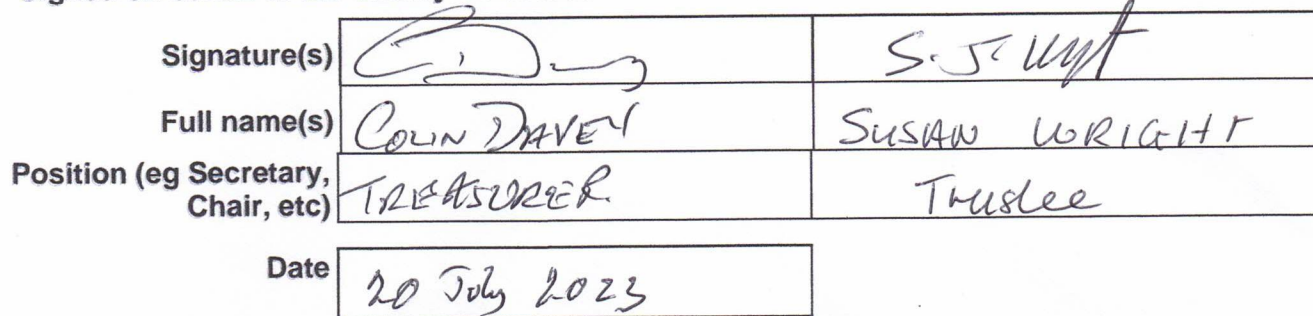 Signature(s) S. J. Wright
Full name(s) COLIN DAVEY SUSAN WRIGHT
Position (eg Secretary,
Chair, etc) TREASURER Trustee
Date 20 July 2023